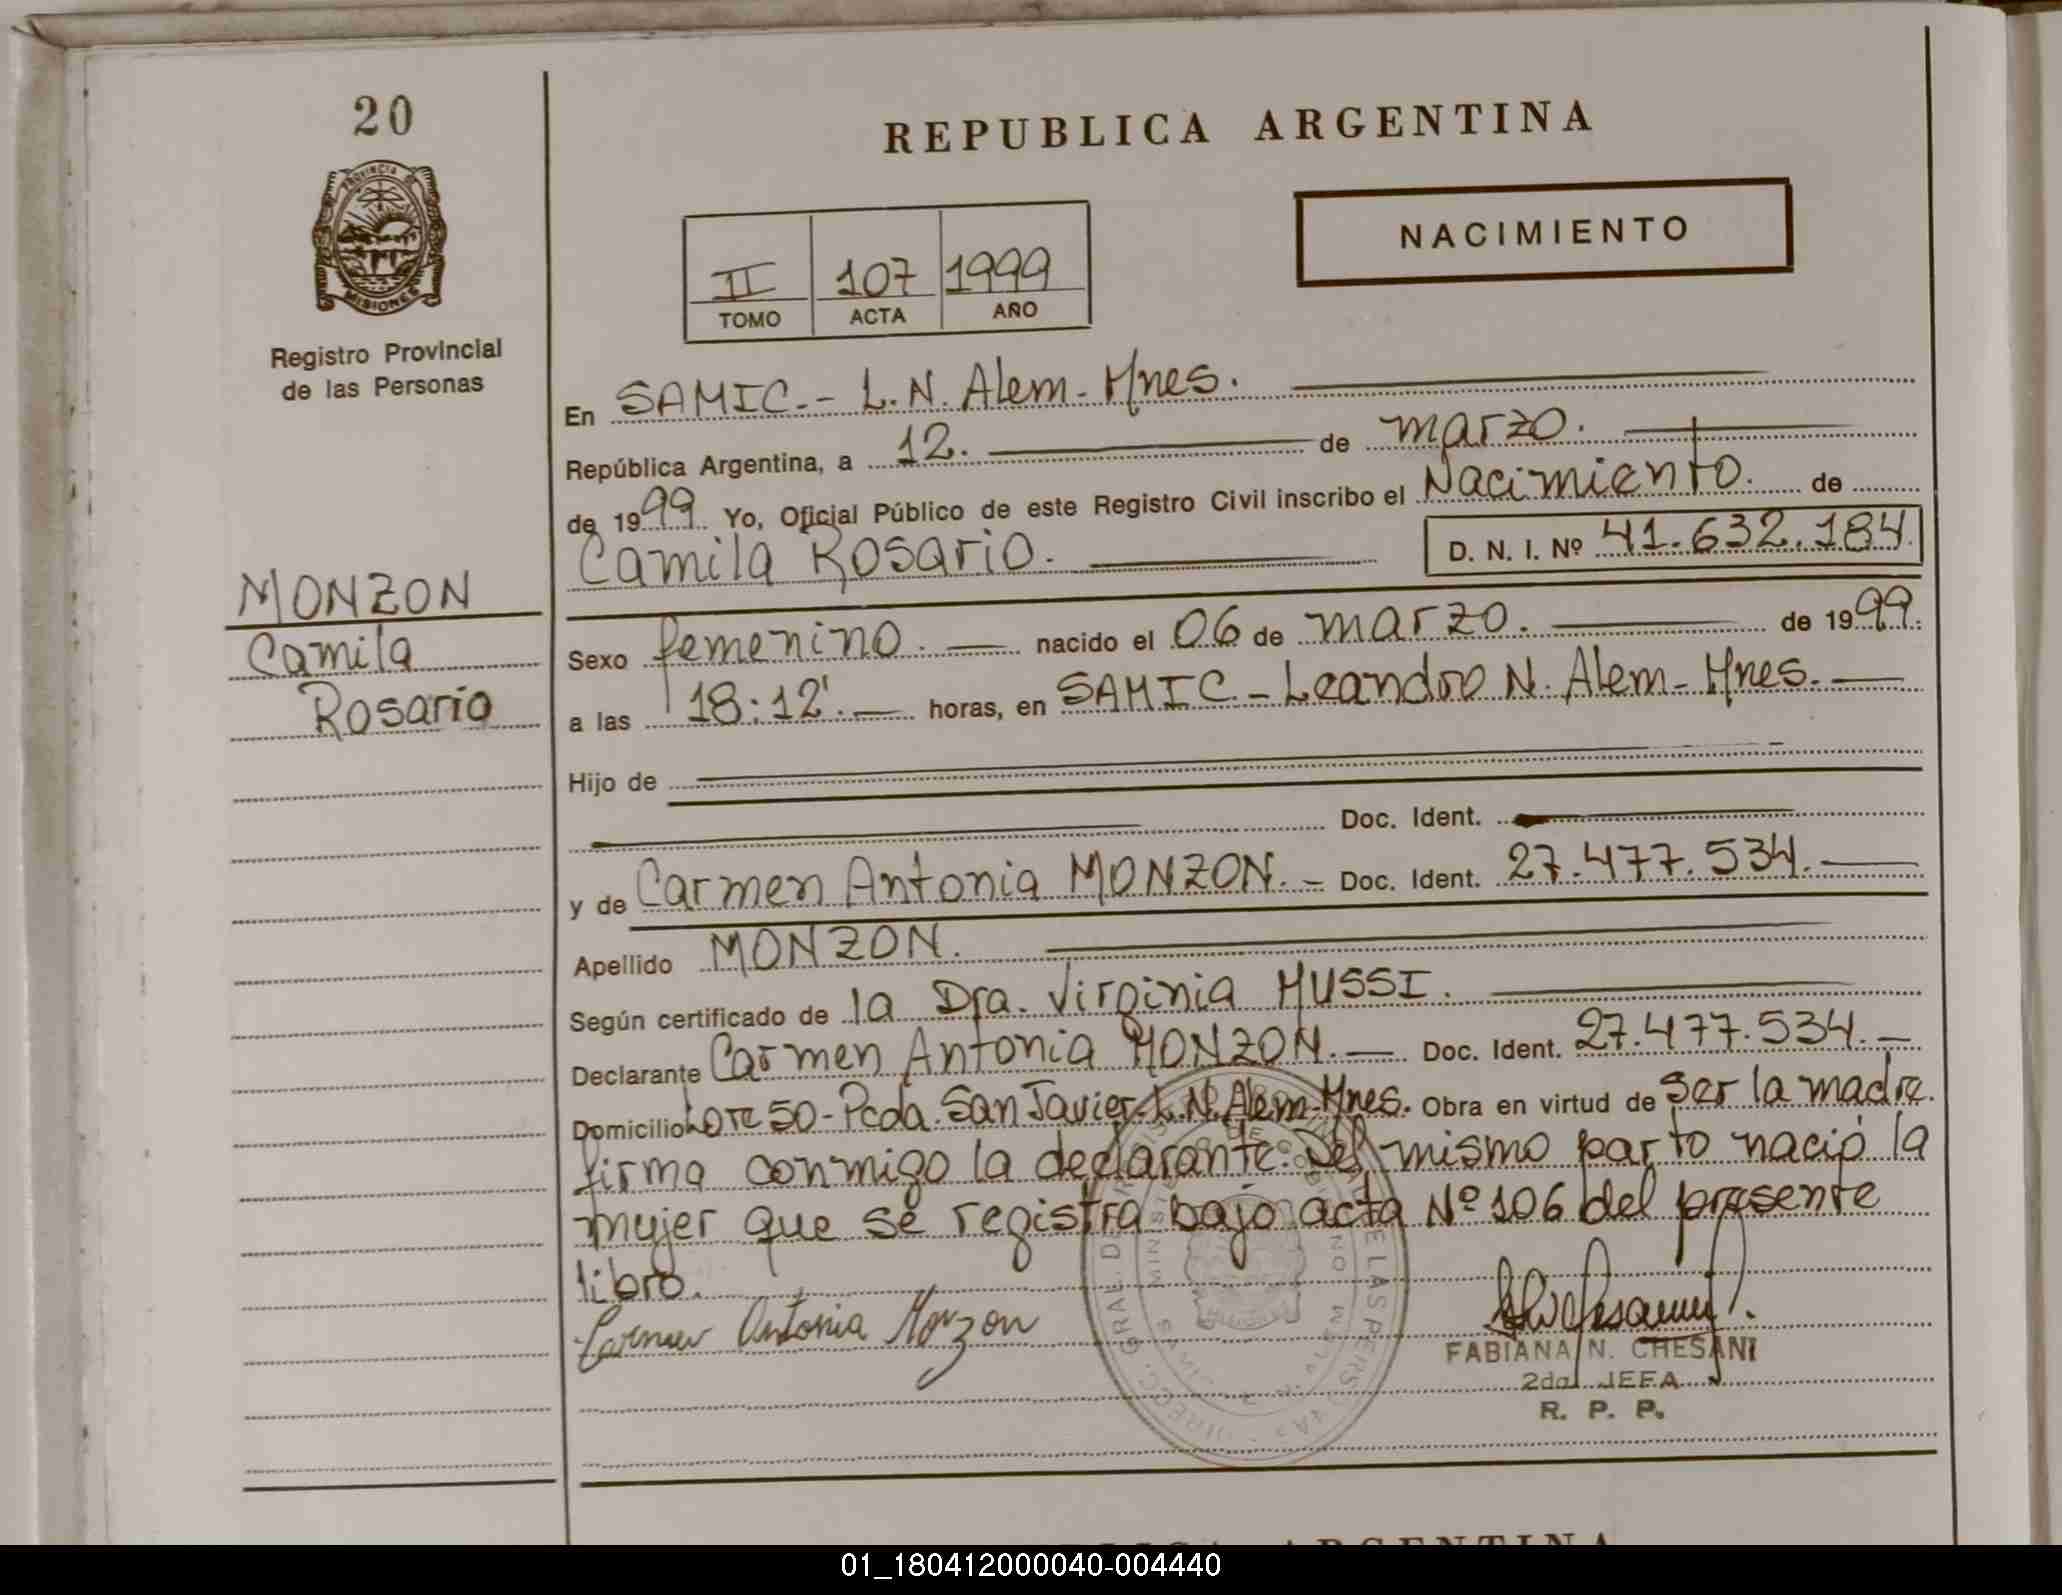 20
REPUBLICA ARGENTINA
PROVINCIA DE
MISIONES
NACIMIENTO
II 107 1999
TOMO ACTA AÑO
Registro Provincial
de las Personas
En SAMIC.- L.N. Alem- Mnes.
República Argentina, a 12. de marzo.
de 1999 Yo, Oficial Público de este Registro Civil inscribo el Nacimiento. de
Camila Rosario. D. N. I. Nº 41.632.184.
MONZON
Camila
Rosario
Sexo femenino. nacido el 06 de marzo. de 1999.
a las 18:12'. horas, en SAMIC - Leandro N. Alem- Mnes.
Hijo de
Doc. Ident.
y de Carmen Antonia MONZON. - Doc. Ident. 27.477.534.
Apellido MONZON.
Según certificado de la Dra. Virginia MUSSI.
Declarante Carmen Antonia MONZON. Doc. Ident. 27.477.534.
Domicilio Lote 50-Pcda. San Javier-L.N. Alem-Mnes. Obra en virtud de ser la madre.
firma conmigo la declarante. Del mismo parto nació la
mujer que se registra bajo acta Nº 106 del presente
libro.
Carmen Antonia Monzon
FABIANA N. CHESANI
2da. JEFA
R. P. P.
ARGENTINA
01_180412000040-004440